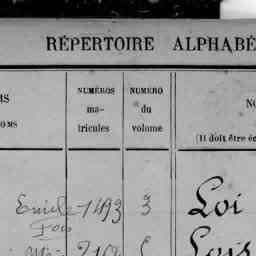 RÉPERTOIRE ALPHABÉ
MS
OMS
NUMÉROS
ma-
tricules
NUMÉRO
du
volume
NO
(Il doit être éc
Emile 1493 3 Loi
Lois